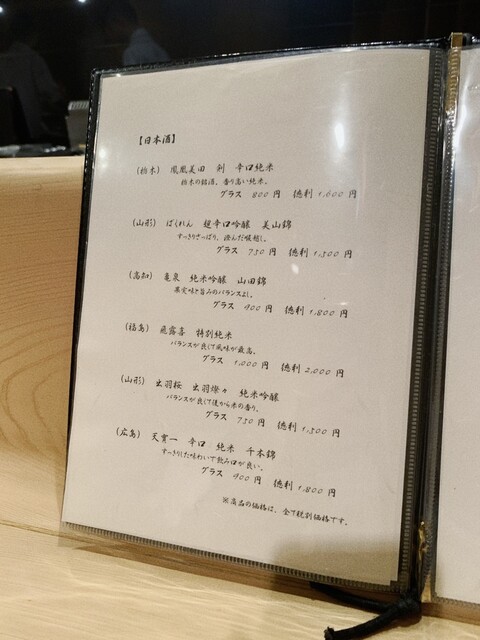 【日本酒】
(栃木) 鳳凰美田 剣 辛口純米
栃木の銘酒。香り高い純米。
グラス 800円 徳利 1,600円
(山形) ばくれん 超辛口吟醸 美山錦
すっきりさっぱり、澄んだ喉越し。
グラス 750円 徳利 1,500円
(高知) 亀泉 純米吟醸 山田錦
果実味と旨みのバランスよし。
グラス 900円 徳利 1,800円
(福島) 飛露喜 特別純米
バランスが良くて風味が最高。
グラス 1,000円 徳利 2,000円
(山形) 出羽桜 出羽燦々 純米吟醸
バランスが良くて後から米の香り。
グラス 750円 徳利 1,500円
(広島) 天寶一 辛口 純米 千本錦
すっきりした味わいで飲み口が良い。
グラス 900円 徳利 1,800円
※商品の価格は、全て税別価格です。